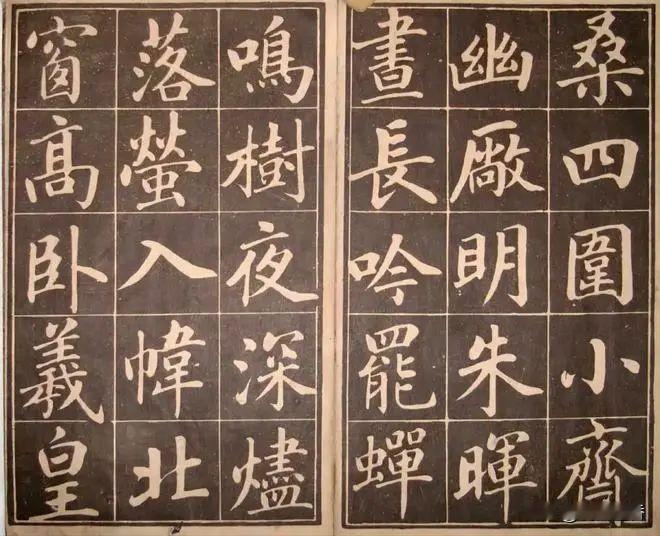 桑四圍小齋
幽厰明朱暉
晝長吟罷蟬
鳴樹夜深燼
落螢入幃北
窗高卧羲皇